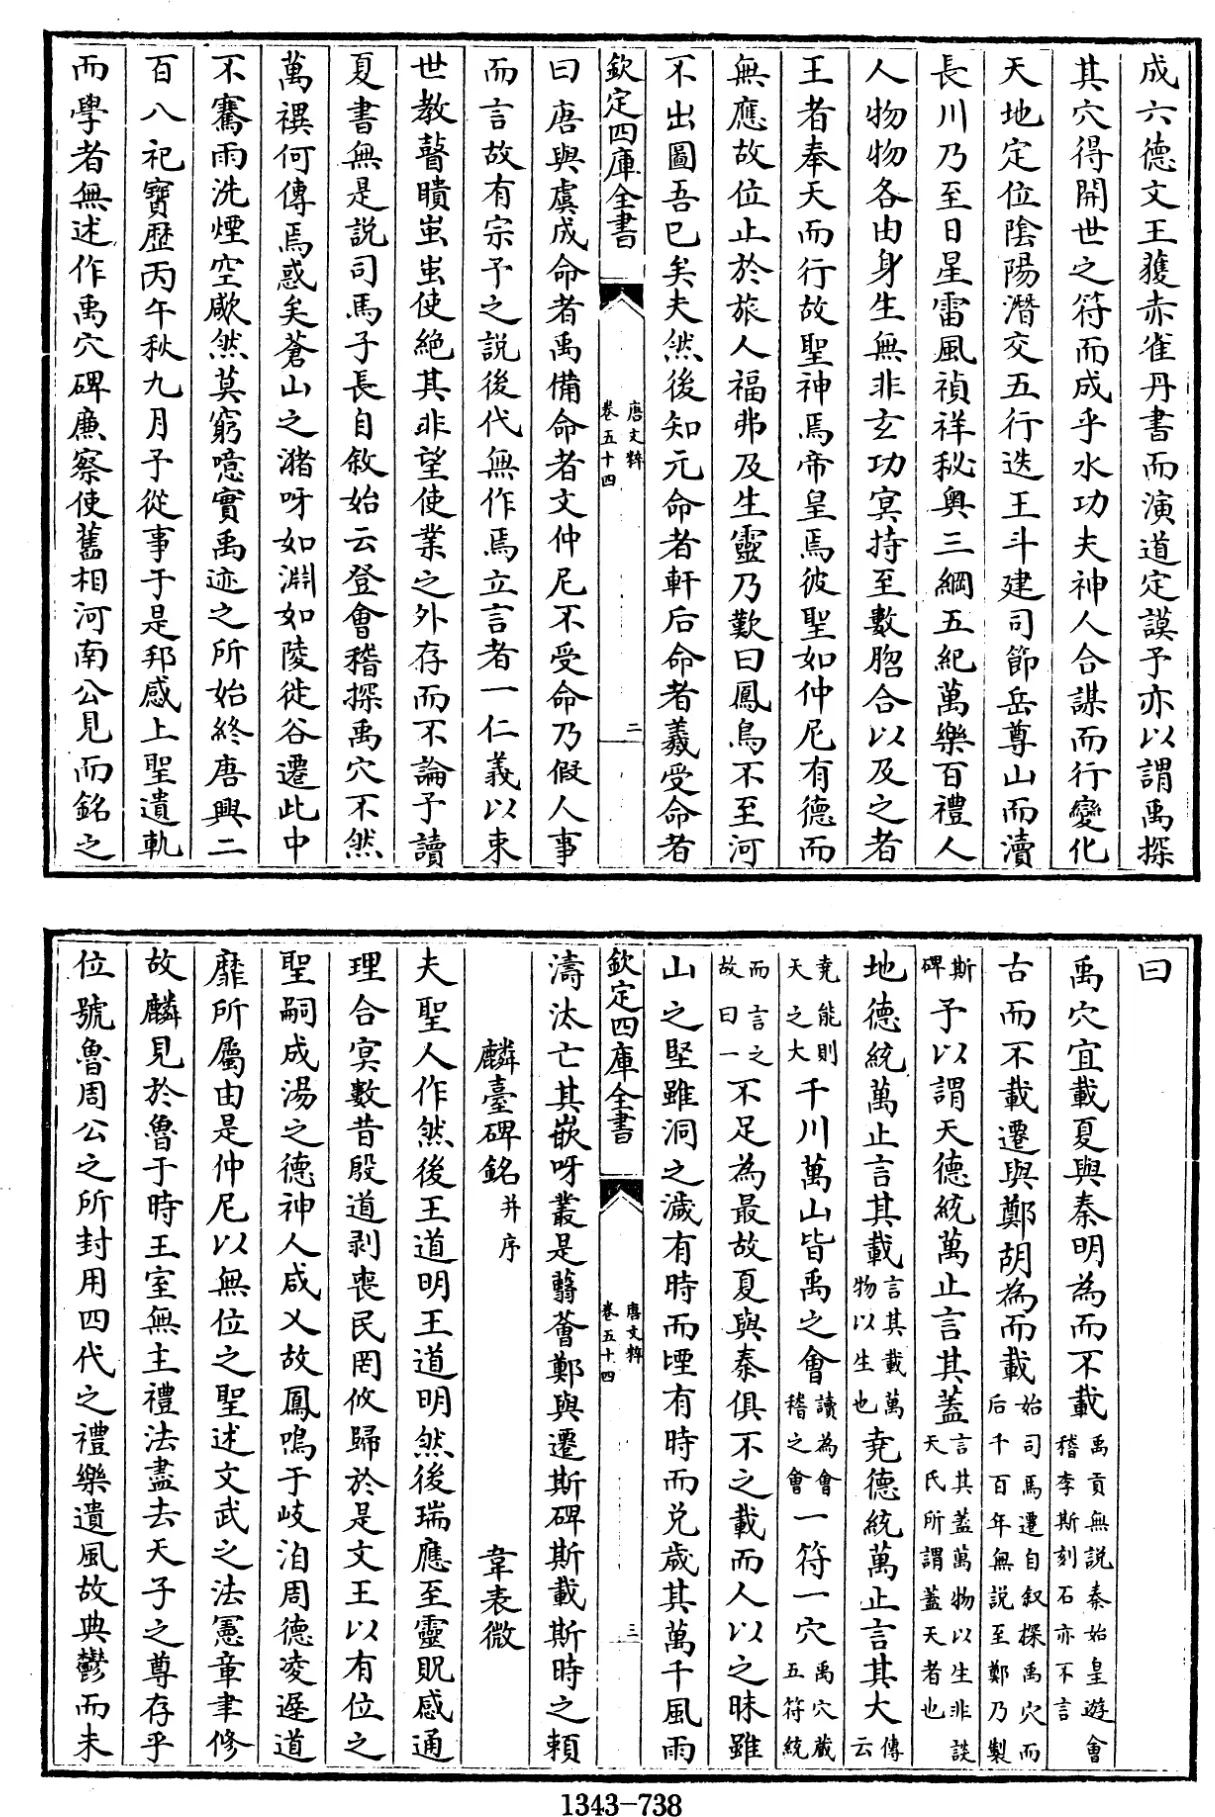 成六德文王獲赤雀丹書而演道定謨予亦以謂禹探
其穴得開世之符而成乎水功夫神人合謀而行變化
天地定位陰陽潛交五行迭王斗建司節岳尊山而瀆
長川乃至日星雷風禎祥秘奥三綱五紀萬樂百禮人
人物物各由身生無非玄功冥持至數脗合以及之者
王者奉天而行故聖神焉帝皇焉彼聖如仲尼有德而
無應故位止於旅人福弗及生靈乃歎曰鳳鳥不至河
不出圖吾已矣夫然後知元命者軒后命者羲受命者
欽定四庫全書
唐文粹
卷五十四
二
曰唐與虞成命者禹備命者文仲尼不受命乃假人事
而言故有宗予之説後代無作焉立言者一仁義以束
世教瞽瞶蚩蚩使絶其非望使業之外存而不論予讀
夏書無是説司馬子長自敘始云登會稽探禹穴不然
萬禩何傳焉惑矣蒼山之潴呀如淵如陵徙谷遷此中
不騫雨洗煙空歘然莫窮噫實禹迹之所始終唐興二
百八祀寶歷丙午秋九月予從事于是邦感上聖遺軌
而學者無述作禹穴碑廉察使舊相河南公見而銘之
曰
禹穴宜載夏與秦明為而不載禹貢無説秦始皇遊會稽李斯刻石亦不言
古而不載遷與鄭胡為而載始司馬遷自叙探禹穴而后千百年無説至鄭乃製
斯碑予以謂天德統萬止言其蓋言其蓋萬物以生非談天氏所謂蓋天者也
地德統萬止言其載言其載萬物以生也堯德統萬止言其大傳云
堯能則天之大千川萬山皆禹之會讀為會稽之會一符一穴禹穴藏五符統
而言之故曰一不足為最故夏與秦俱不之載而人以之昧雖
山之堅雖洞之濊有時而堙有時而兌歲其萬千風雨
欽定四庫全書
唐文粹
卷五十四
三
濤汰亡其嵌呀叢是蓊薈鄭與遷斯碑斯載斯時之頼
麟臺碑銘并序 韋表微
夫聖人作然後王道明王道明然後瑞應至靈貺感通
理合冥數昔殷道剥喪民罔攸歸於是文王以有位之
聖嗣成湯之德神人咸乂故鳳鳴于岐洎周德凌遲道
靡所屬由是仲尼以無位之聖述文武之法憲章聿修
故麟見於魯于時王室無主禮法盡去天子之尊存乎
位號魯周公之所封用四代之禮樂遺風故典鬱而未
1343-738